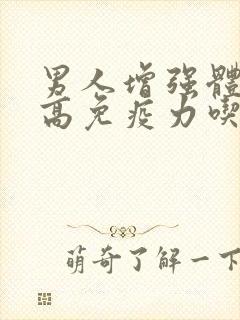 男人增强體
高免疫力喫
萌奇了解一下